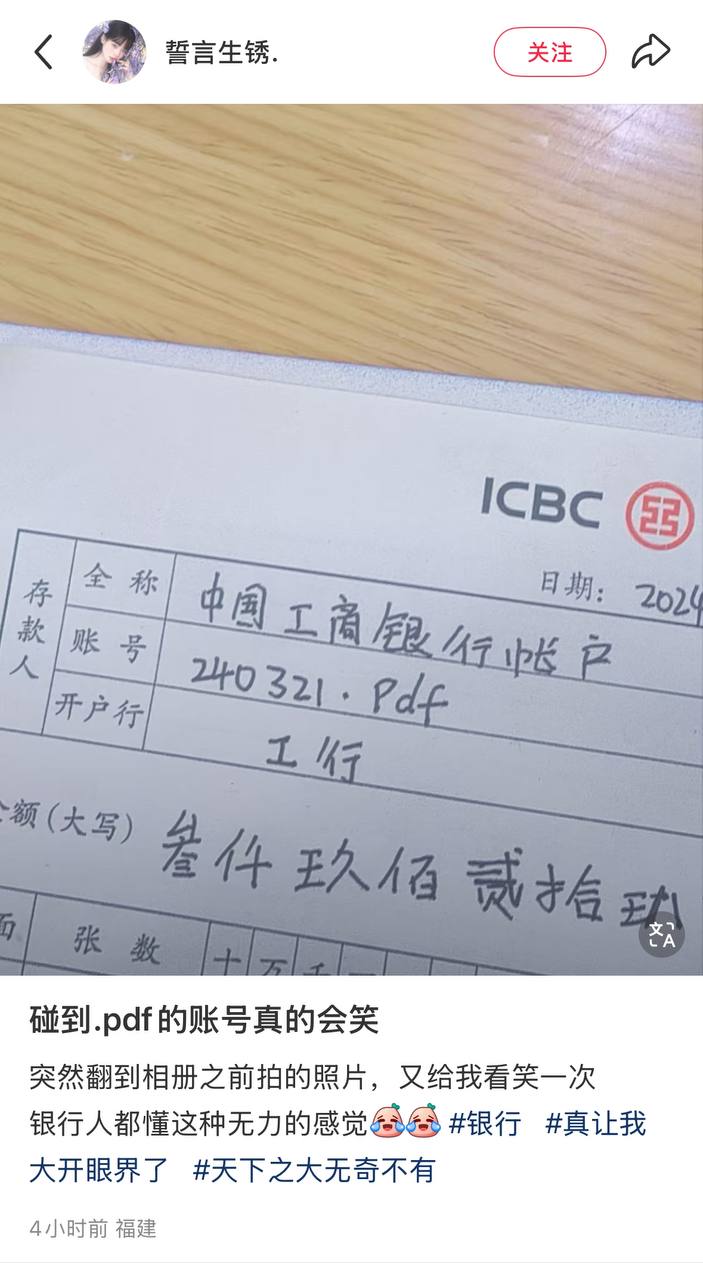 誓言生锈.
关注
ICBC
日期： 2024
存款人
全称 中国工商银行帐户
账号 240321.Pdf
开户行 工行
额(大写) 叁仟玖佰贰拾玖
张数 十万千
碰到.pdf的账号真的会笑
突然翻到相册之前拍的照片，又给我看笑一次
银行人都懂这种无力的感觉 #银行 #真让我
大开眼界了 #天下之大无奇不有
4小时前 福建